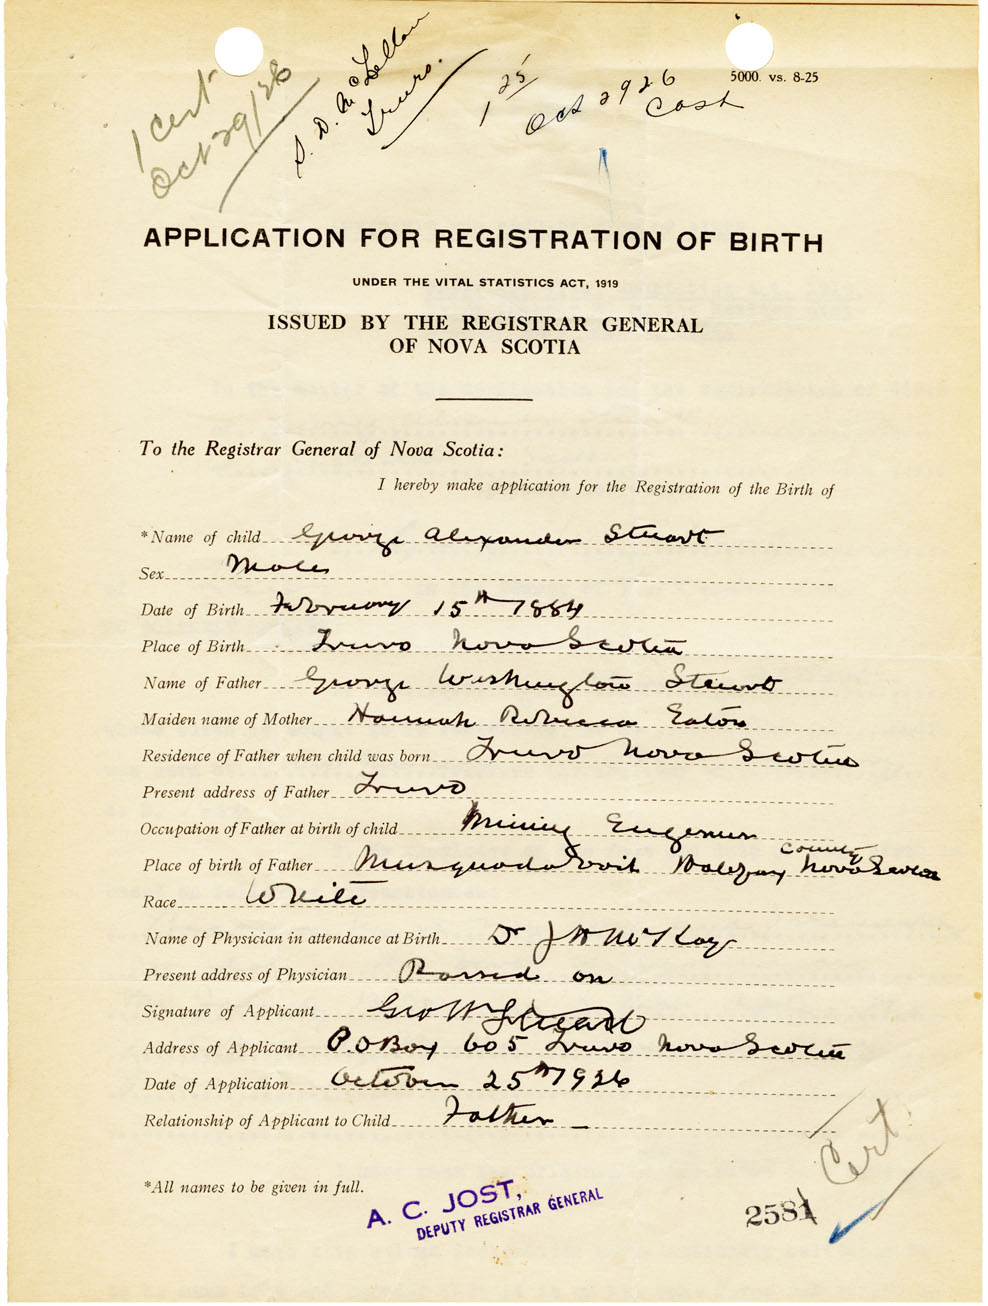 1 cert
Oct 29/26
S. D. McLellan
Truro.
1 25
Oct 29 26
Cash
5000. vs. 8-25
APPLICATION FOR REGISTRATION OF BIRTH
UNDER THE VITAL STATISTICS ACT, 1919
ISSUED BY THE REGISTRAR GENERAL
OF NOVA SCOTIA
To the Registrar General of Nova Scotia:
I hereby make application for the Registration of the Birth of
*Name of child George Alexander Stuart
Sex Male
Date of Birth February 15th 1884
Place of Birth Truro Nova Scotia
Name of Father George Washington Stuart
Maiden name of Mother Hannah Rebecca Eaton
Residence of Father when child was born Truro Nova Scotia
Present address of Father Truro
Occupation of Father at birth of child Mining Engenier
county
Place of birth of Father Musquodoboit Halifax Nova Scotia
Race White
Name of Physician in attendance at Birth Dr J H McKay
Present address of Physician Passed on
Signature of Applicant Geo W Stuart
Address of Applicant P.O Box 605 Truro Nova Scotia
Date of Application October 25th 1926
Relationship of Applicant to Child Father
Cert.
*All names to be given in full.
A. C. JOST,
DEPUTY REGISTRAR GENERAL
2581